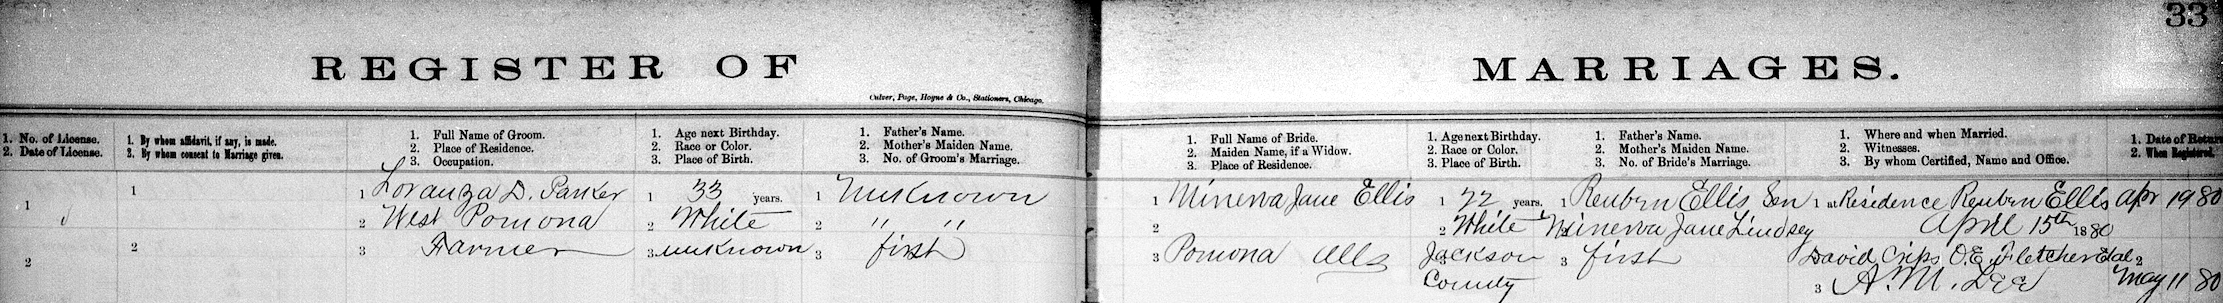 33
REGISTER OF MARRIAGES.
Culver, Page, Hoyne & Co., Stationers, Chicago.
1. No. of License.
2. Date of License.
1. By whom affidavit, if any, is made.
2. By whom consent to Marriage given.
1. Full Name of Groom.
2. Place of Residence.
3. Occupation.
1. Age next Birthday.
2. Race or Color.
3. Place of Birth.
1. Father's Name.
2. Mother's Maiden Name.
3. No. of Groom's Marriage.
1. Full Name of Bride.
2. Maiden Name, if a Widow.
3. Place of Residence.
1. Age next Birthday.
2. Race or Color.
3. Place of Birth.
1. Father's Name.
2. Mother's Maiden Name.
3. No. of Bride's Marriage.
1. Where and when Married.
2. Witnesses.
3. By whom Certified, Name and Office.
1. Date of Return
2. When Registered.
1
2
1
2
1 Loranza D. Parker
2 West Pomona
3 Farmer
1 33 years.
2 White
3 unknown
1 Unknown
2 " "
3 first
1 Minerva Jane Ellis
2
3 Pomona Ills
1 22 years.
2 White
3 Jackson
County
1 Reuben Ellis Sen
2 Minerva Jane Lindsey
3 first
1 at Residence Reuben Ellis
April 15th 1880
David Crips O.E. Fletcher et al
3 A. M. Lee
Apr 19 80
2 May 11 80